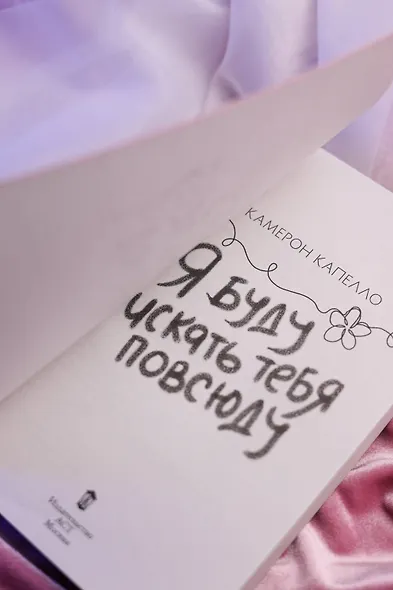 КАМЕРОН КАПЕЛЛО
Я БУДУ
ИСКАТЬ ТЕБЯ
ПОВСЮДУ
Издательство
АСТ
Москва